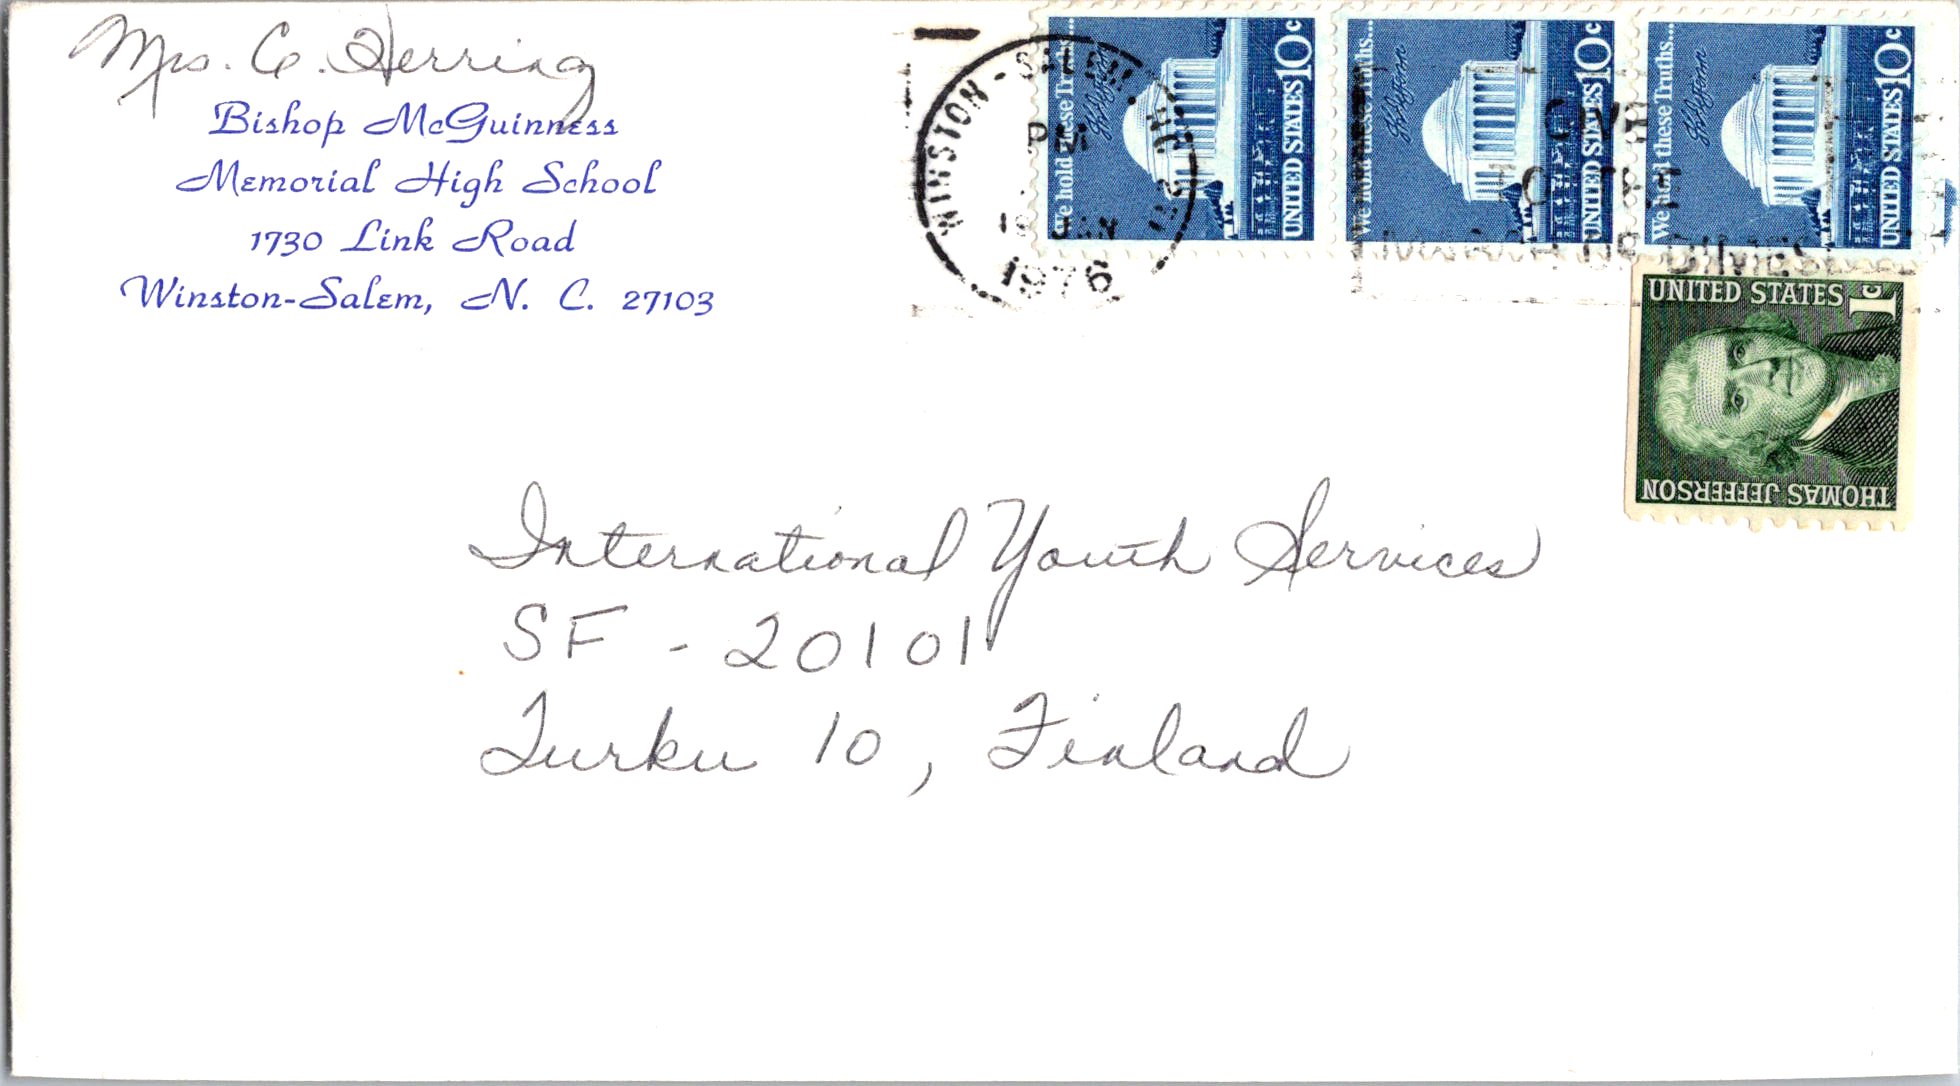 Mrs. C. Herring
Bishop McGuinness
Memorial High School
1730 Link Road
Winston-Salem, N. C. 27103
WINSTON-SALEM, NC
PM
JAN
1976
GIVE
TO THE
MARCH OF DIMES
We hold these Truths...
UNITED STATES 10c
We hold these Truths...
UNITED STATES 10c
We hold these Truths...
UNITED STATES 10c
UNITED STATES 1c
THOMAS JEFFERSON
International Youth Services
SF - 20101
Turku 10, Finland